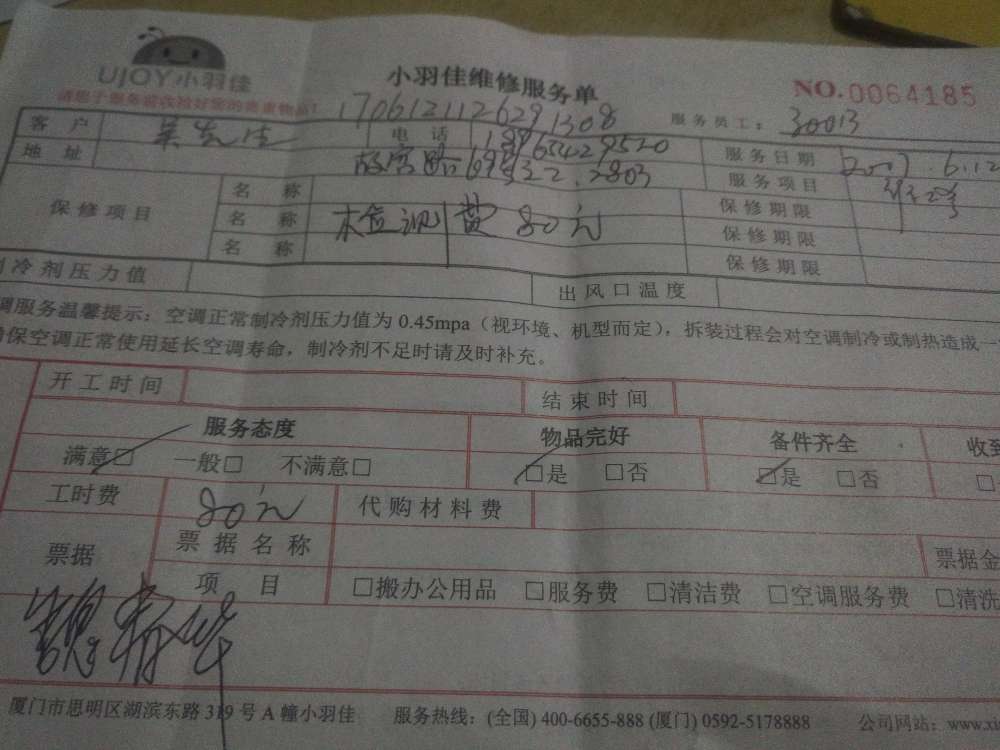 UJOY小羽佳
小羽佳维修服务单
NO.0064185
1706121126291308
服务员工：30013
客 户 吴先生 电 话 服务日期
地 址 服务项目
保修项目 名 称 保修期限
名 称 检测费 80元 保修期限
名 称 保修期限
冷剂压力值 出风口温度
调服务温馨提示：空调正常制冷剂压力值为 0.45mpa（视环境、机型而定），拆装过程会对空调制冷或制热造成一
保空调正常使用延长空调寿命，制冷剂不足时请及时补充。
开工时间 结束时间
服务态度 物品完好 备件齐全 收到
满意□ 一般□ 不满意□ □是 □否 □是 □否 □
工时费 80元 代购材料费
票据 票据名称 票据金
项 目 □搬办公用品 □服务费 □清洁费 □空调服务费 □清洗
厦门市思明区湖滨东路 319 号 A 幢小羽佳 服务热线：(全国) 400-6655-888 (厦门) 0592-5178888 公司网站：www.xi